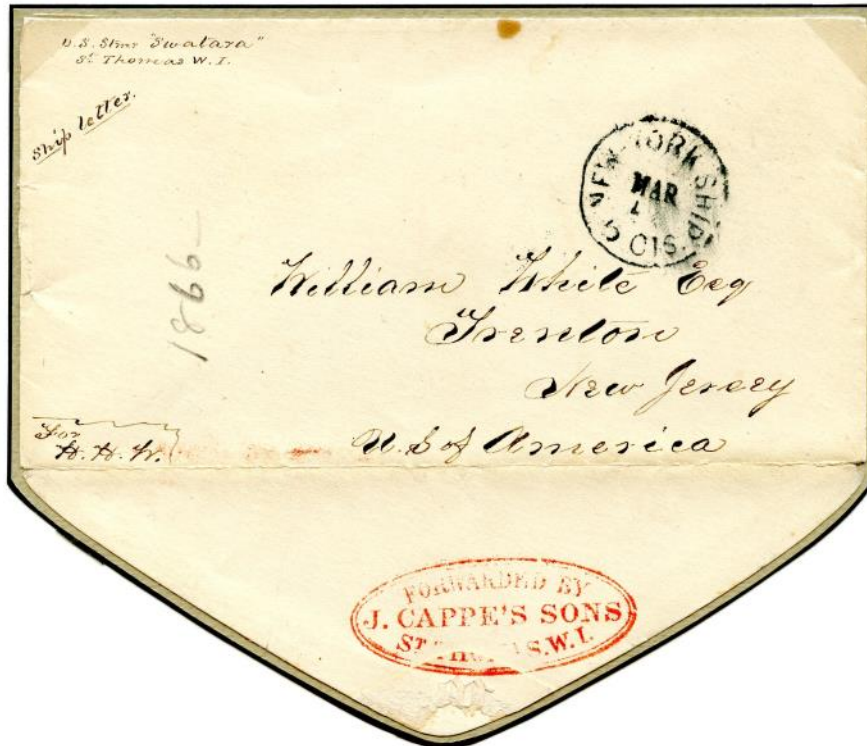 U.S. Stmr "Swatara"
St Thomas W.I.
Ship letter.
NEW YORK SHIP
MAR
4
1866
William White Esq
Trenton
New Jersey
U.S of America
For
H.H.W.
FORWARDED BY
J. CAPPE'S SONS
ST THOMAS.W.I.